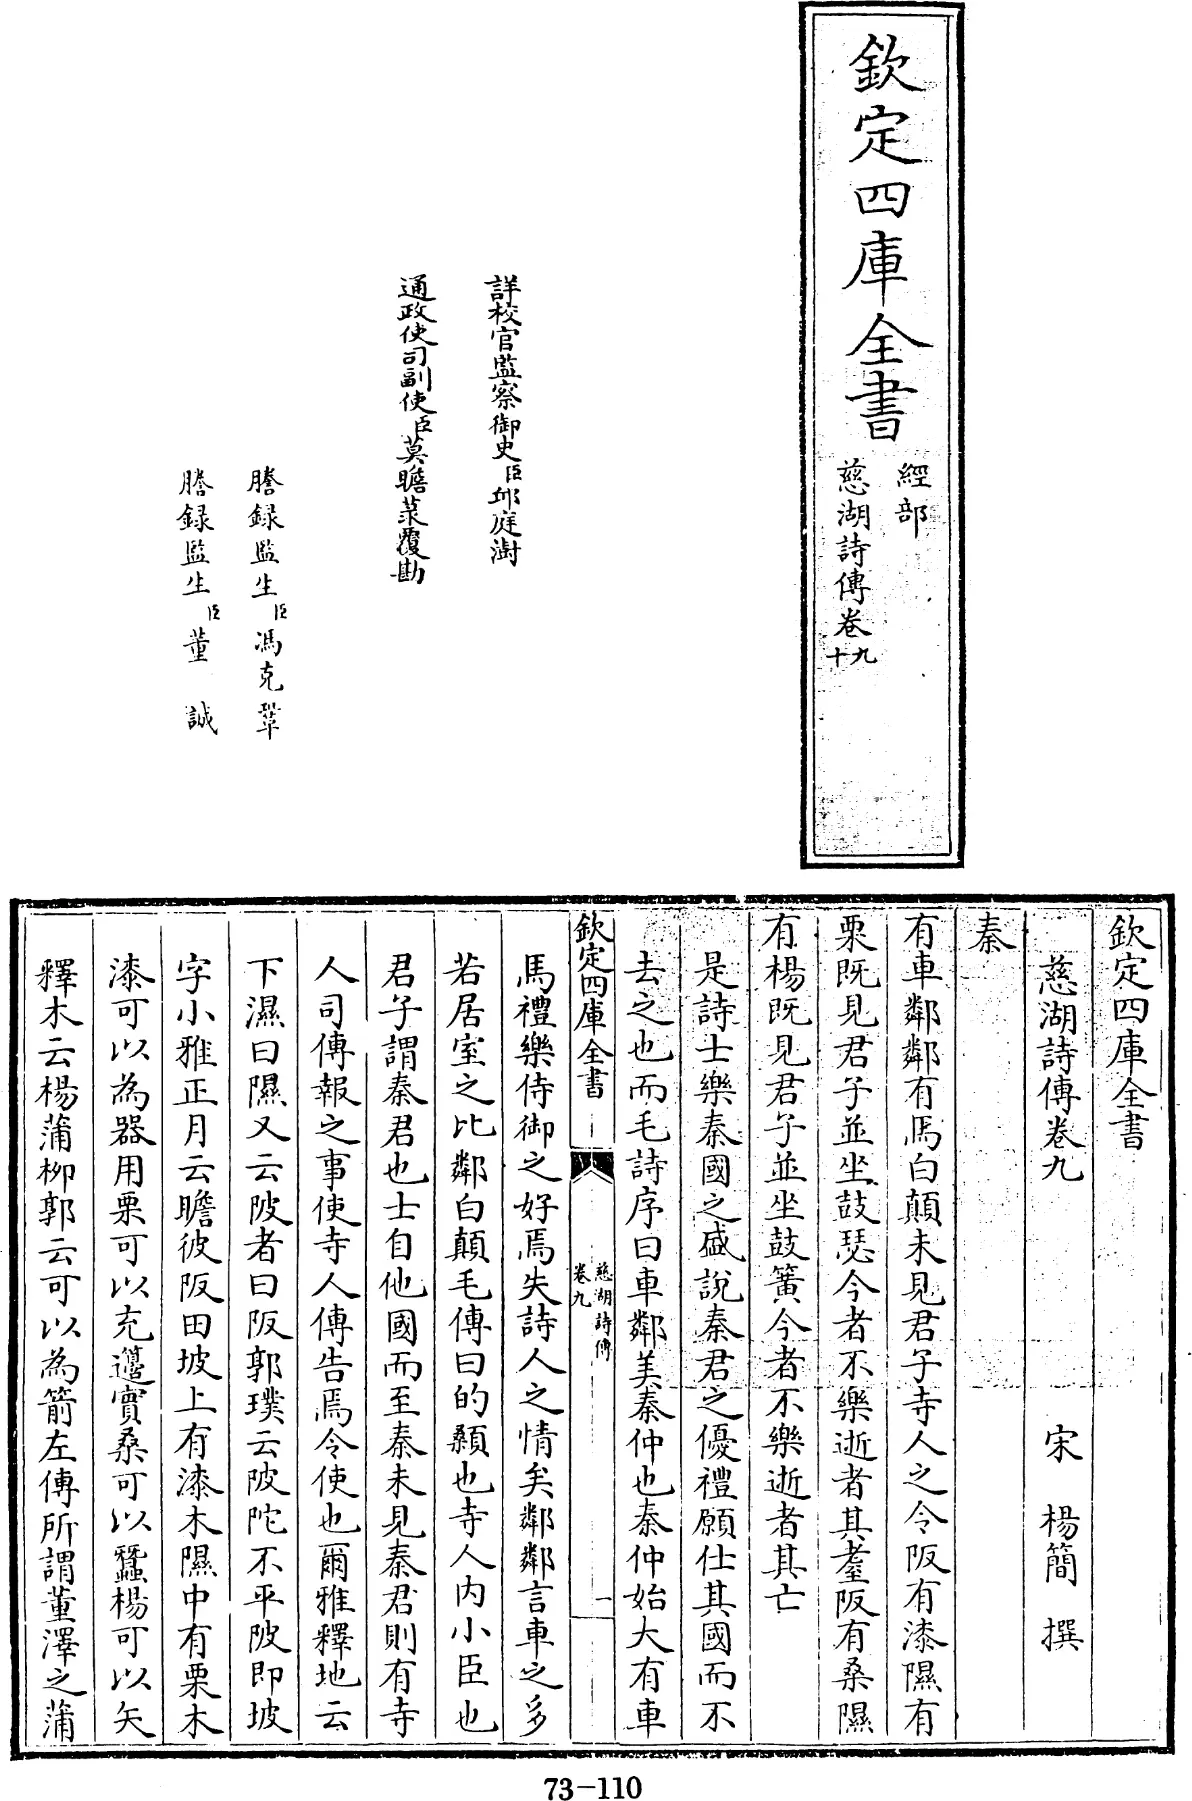 欽定四庫全書
經部
慈湖詩傳卷九
十
詳校官監察御史臣邱庭澍
通政使司副使臣莫瞻菉覆勘
謄録監生臣馮克鞏
謄録監生臣董誠
欽定四庫全書
慈湖詩傳卷九
宋 楊簡 撰
秦
有車鄰鄰有馬白顛未見君子寺人之令阪有漆隰有
栗既見君子並坐鼓瑟今者不樂逝者其耋阪有桑隰
有楊既見君子並坐鼓簧今者不樂逝者其亡
是詩士樂秦國之盛說秦君之優禮願仕其國而不
去之也而毛詩序曰車鄰美秦仲也秦仲始大有車
欽定四庫全書
慈湖詩傳
卷九
一
馬禮樂侍御之好焉失詩人之情矣鄰鄰言車之多
若居室之比鄰白顛毛傳曰的顙也寺人內小臣也
君子謂秦君也士自他國而至秦未見秦君則有寺
人司傳報之事使寺人傳告焉令使也爾雅釋地云
下濕曰隰又云陂者曰阪郭璞云陂陀不平陂即坡
字小雅正月云瞻彼阪田坡上有漆木隰中有栗木
漆可以為器用栗可以充籩實桑可以蠶楊可以矢
釋木云楊蒲柳郭云可以為箭左傳所謂董澤之蒲
73-110